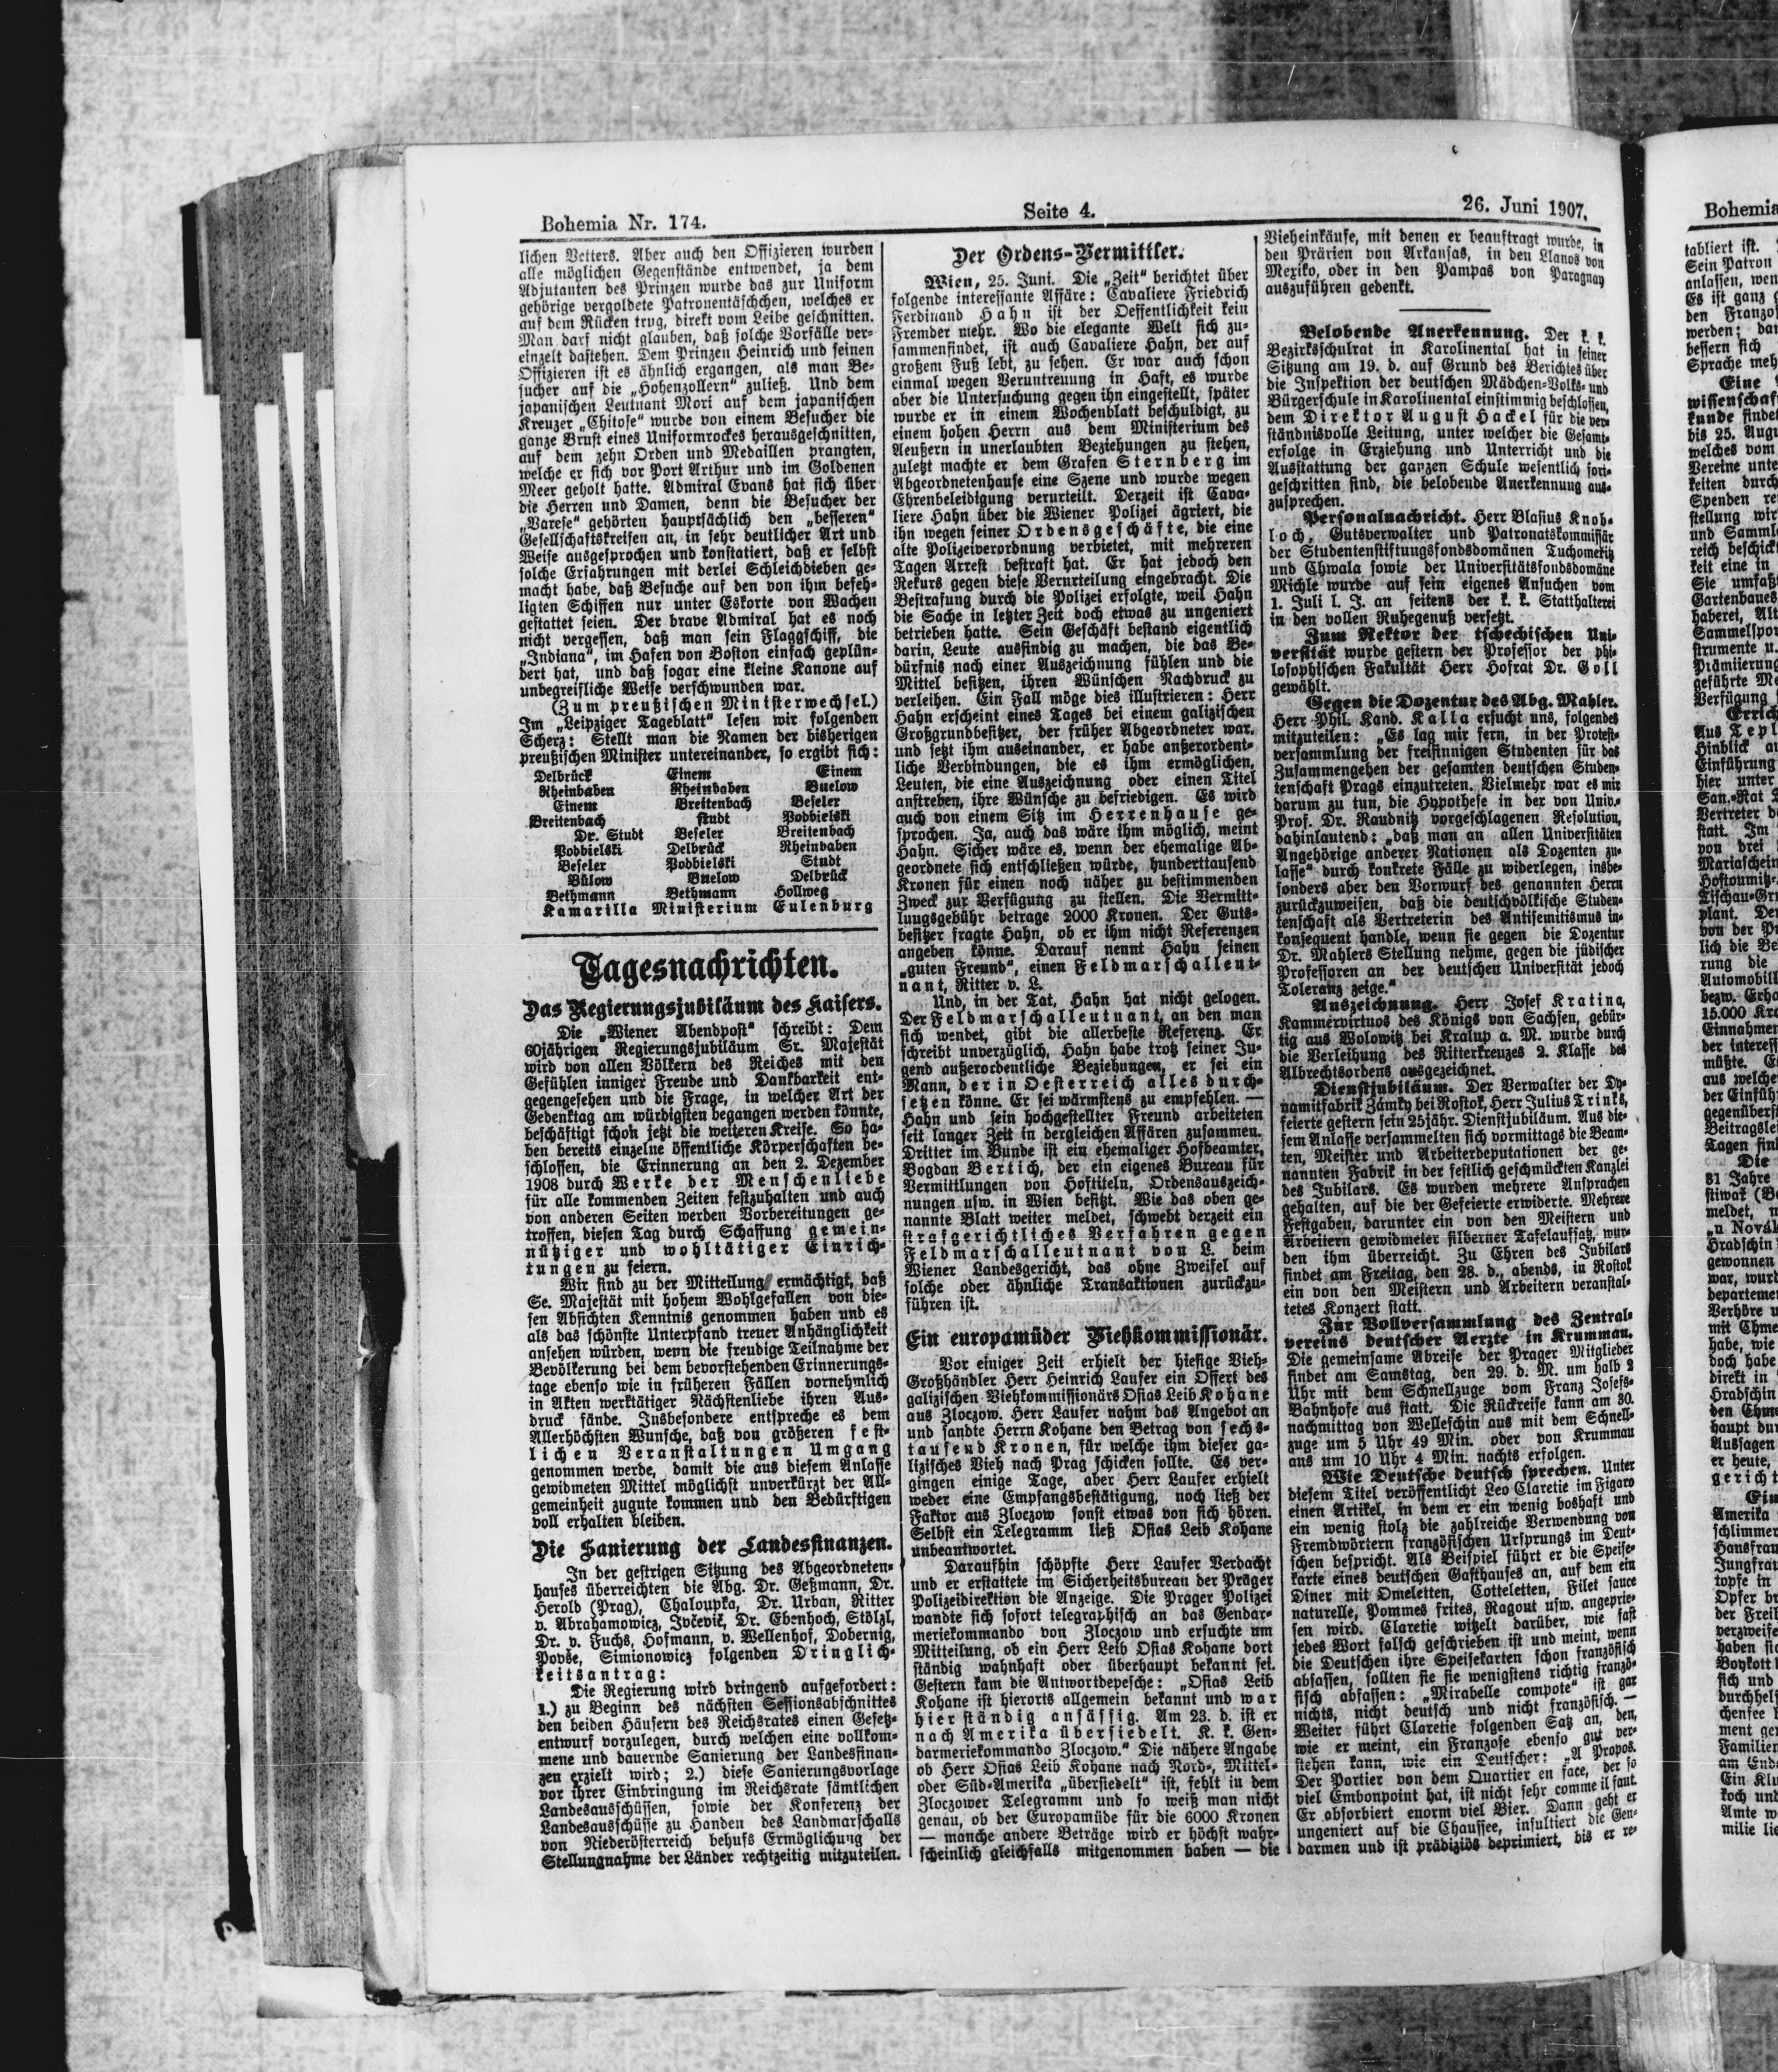 Bohemia Nr. 174.
Seite 4.
26. Juni 1907.
lichen Vetters. Aber auch den Offizieren wurden
alle möglichen Gegenstände entwendet, ja dem
Adjutanten des Prinzen wurde das zur Uniform
gehörige vergoldete Patronentäschchen, welches er
auf dem Rücken trug, direkt vom Leibe geschnitten.
Man darf nicht glauben, daß solche Vorfälle ver-
einzelt dastehen. Dem Prinzen Heinrich und seinen
Offizieren ist es ähnlich ergangen, als man Be-
sucher auf die „Hohenzollern“ zuließ. Und dem
japanischen Leutnant Mori auf dem japanischen
Kreuzer „Chitose“ wurde von einem Besucher die
ganze Brust eines Uniformrockes herausgeschnitten,
auf dem zehn Orden und Medaillen prangten,
welche er sich vor Port Arthur und im Goldenen
Meer geholt hatte. Admiral Evans hat sich über
die Herren und Damen, denn die Besucher der
„Varese“ gehörten hauptsächlich den „besseren“
Gesellschaftskreisen an, in sehr deutlicher Art und
Weise ausgesprochen und konstatiert, daß er selbst
solche Erfahrungen mit derlei Schleichdieben ge-
macht habe, daß Besuche auf den von ihm befeh-
ligten Schiffen nur unter Eskorte von Wachen
gestattet seien. Der brave Admiral hat es noch
nicht vergessen, daß man sein Flaggschiff, die
„Indiana“, im Hafen von Boston einfach geplün-
dert hat, und daß sogar eine kleine Kanone auf
unbegreifliche Weise verschwunden war.
(Zum preußischen Ministerwechsel.)
Im „Leipziger Tageblatt“ lesen wir folgenden
Scherz: Stellt man die Namen der bisherigen
preußischen Minister untereinander, so ergibt sich:
Delbrück Einem Einem
Rheinbaben Rheinbaben Buelow
Einem Breitenbach Beseler
Breitenbach studt Podbielski
Dr. Studt Beseler Breitenbach
Podbielski Delbrück Rheinbaben
Beseler Podbielski Studt
Bülow Buelow Delbrück
Bethmann Bethmann Hollweg
Kamarilla Ministerium Eulenburg
Tagesnachrichten.
Das Regierungsjubiläum des Kaisers.
Die „Wiener Abendpost“ schreibt: Dem
60jährigen Regierungsjubiläum Sr. Majestät
wird von allen Völkern des Reiches mit den
Gefühlen inniger Freude und Dankbarkeit ent-
gegengesehen und die Frage, in welcher Art der
Gedenktag am würdigsten begangen werden könnte,
beschäftigt schon jetzt die weiteren Kreise. So ha-
ben bereits einzelne öffentliche Körperschaften be-
schlossen, die Erinnerung an den 2. Dezember
1908 durch Werke der Menschenliebe
für alle kommenden Zeiten festzuhalten und auch
von anderen Seiten werden Vorbereitungen ge-
troffen, diesen Tag durch Schaffung gemein-
nütziger und wohltätiger Einrich-
tungen zu feiern.
Wir sind zu der Mitteilung ermächtigt, daß
Se. Majestät mit hohem Wohlgefallen von die-
sen Absichten Kenntnis genommen haben und es
als das schönste Unterpfand treuer Anhänglichkeit
ansehen würden, wenn die freudige Teilnahme der
Bevölkerung bei dem bevorstehenden Erinnerungs-
tage ebenso wie in früheren Fällen vornehmlich
in Akten werktätiger Nächstenliebe ihren Aus-
druck fände. Insbesondere entspreche es dem
Allerhöchsten Wunsche, daß von größeren fest-
lichen Veranstaltungen Umgang
genommen werde, damit die aus diesem Anlasse
gewidmeten Mittel möglichst unverkürzt der All-
gemeinheit zugute kommen und den Bedürftigen
voll erhalten bleiben.
Die Sanierung der Landesfinanzen.
In der gestrigen Sitzung des Abgeordneten-
hauses überreichten die Abg. Dr. Geßmann, Dr.
Herold (Prag), Chaloupka, Dr. Urban, Ritter
v. Abrahamowicz, Ivčević, Dr. Ebenhoch, Stölzl,
Dr. v. Fuchs, Hofmann, v. Wellenhof, Dobernig,
Povše, Simionowicz folgenden Dringlich-
keitsantrag:
Die Regierung wird dringend aufgefordert:
1.) zu Beginn des nächsten Sessionsabschnittes
den beiden Häusern des Reichsrates einen Gesetz-
entwurf vorzulegen, durch welchen eine vollkom-
mene und dauernde Sanierung der Landesfinan-
zen erzielt wird; 2.) diese Sanierungsvorlage
vor ihrer Einbringung im Reichsrate sämtlichen
Landesausschüssen, sowie der Konferenz der
Landesausschüsse zu Handen des Landmarschalls
von Niederösterreich behufs Ermöglichung der
Stellungnahme der Länder rechtzeitig mitzuteilen.
Der Ordens-Vermittler.
Wien, 25. Juni. Die „Zeit“ berichtet über
folgende interessante Affäre: Cavaliere Friedrich
Ferdinand Hahn ist der Oeffentlichkeit kein
Fremder mehr. Wo die elegante Welt sich zu-
sammenfindet, ist auch Cavaliere Hahn, der auf
großem Fuß lebt, zu sehen. Er war auch schon
einmal wegen Veruntreuung in Haft, es wurde
aber die Untersuchung gegen ihn eingestellt, später
wurde er in einem Wochenblatt beschuldigt, zu
einem hohen Herrn aus dem Ministerium des
Aeußern in unerlaubten Beziehungen zu stehen,
zuletzt machte er dem Grafen Sternberg im
Abgeordnetenhause eine Szene und wurde wegen
Ehrenbeleidigung verurteilt. Derzeit ist Cava-
liere Hahn über die Wiener Polizei agriert, die
ihn wegen seiner Ordensgeschäfte, die eine
alte Polizeiverordnung verbietet, mit mehreren
Tagen Arrest bestraft hat. Er hat jedoch den
Rekurs gegen diese Verurteilung eingebracht. Die
Bestrafung durch die Polizei erfolgte, weil Hahn
die Sache in letzter Zeit doch etwas zu ungeniert
betrieben hatte. Sein Geschäft bestand eigentlich
darin, Leute ausfindig zu machen, die das Be-
dürfnis nach einer Auszeichnung fühlen und die
Mittel besitzen, ihren Wünschen Nachdruck zu
verleihen. Ein Fall möge dies illustrieren: Herr
Hahn erscheint eines Tages bei einem galizischen
Großgrundbesitzer, der früher Abgeordneter war,
und setzt ihm auseinander, er habe außerordent-
liche Verbindungen, die es ihm ermöglichen,
Leuten, die eine Auszeichnung oder einen Titel
anstreben, ihre Wünsche zu befriedigen. Es wird
auch von einem Sitz im Herrenhause ge-
sprochen. Ja, auch das wäre ihm möglich, meint
Hahn. Sicher wäre es, wenn der ehemalige Ab-
geordnete sich entschließen würde, hunderttausend
Kronen für einen noch näher zu bestimmenden
Zweck zur Verfügung zu stellen. Die Vermitt-
lungsgebühr betrage 2000 Kronen. Der Guts-
besitzer fragte Hahn, ob er ihm nicht Referenzen
angeben könne. Darauf nennt Hahn seinen
„guten Freund“, einen Feldmarschalleut-
nant, Ritter v. L.
Und, in der Tat, Hahn hat nicht gelogen.
Der Feldmarschalleutnant, an den man
sich wendet, gibt die allerbeste Referenz. Er
schreibt unverzüglich, Hahn habe trotz seiner Ju-
gend außerordentliche Beziehungen, er sei ein
Mann, der in Oesterreich alles durch-
setzen könne. Er sei wärmstens zu empfehlen. —
Hahn und sein hochgestellter Freund arbeiteten
seit langer Zeit in dergleichen Affären zusammen.
Dritter im Bunde ist ein ehemaliger Hofbeamter,
Bogdan Bertich, der ein eigenes Bureau für
Vermittlungen von Hoftiteln, Ordensauszeich-
nungen usw. in Wien besitzt. Wie das oben ge-
nannte Blatt weiter meldet, schwebt derzeit ein
strafgerichtliches Verfahren gegen
Feldmarschalleutnant von L. beim
Wiener Landesgericht, das ohne Zweifel auf
solche oder ähnliche Transaktionen zurückzu-
führen ist.
Ein europamüder Viehkommissionär.
Vor einiger Zeit erhielt der hiesige Vieh-
Großhändler Herr Heinrich Laufer ein Offert des
galizischen Viehkommissionärs Osias Leib Kohane
aus Zloczow. Herr Laufer nahm das Angebot an
und sandte Herrn Kohane den Betrag von sechs-
tausend Kronen, für welche ihm dieser ga-
lizisches Vieh nach Prag schicken sollte. Es ver-
gingen einige Tage, aber Herr Laufer erhielt
weder eine Empfangsbestätigung, noch ließ der
Faktor aus Zloczow sonst etwas von sich hören.
Selbst ein Telegramm ließ Osias Leib Kohane
unbeantwortet.
Daraufhin schöpfte Herr Laufer Verdacht
und er erstattete im Sicherheitsbureau der Prager
Polizeidirektion die Anzeige. Die Prager Polizei
wandte sich sofort telegraphisch an das Gendar-
meriekommando von Zloczow und ersuchte um
Mitteilung, ob ein Herr Leib Osias Kohane dort
ständig wahnhaft oder überhaupt bekannt sei.
Gestern kam die Antwortdepesche: „Osias Leib
Kohane ist hierorts allgemein bekannt und war
hier ständig ansässig. Am 23. d. ist er
nach Amerika übersiedelt. K. k. Gen-
darmeriekommando Zloczow.“ Die nähere Angabe
ob Herr Osias Leib Kohane nach Nord-, Mittel-
oder Süd-Amerika „übersiedelt“ ist, fehlt in dem
Zloczower Telegramm und so weiß man nicht
genau, ob der Europamüde für die 6000 Kronen
— manche andere Beträge wird er höchst wahr-
scheinlich gleichfalls mitgenommen haben — die
Vieheinkäufe, mit denen er beauftragt wurde, in
den Prärien von Arkansas, in den Llanos von
Mexiko, oder in den Pampas von Paraguay
auszuführen gedenkt.
Belobende Anerkennung. Der k. k.
Bezirksschulrat in Karolinental hat in seiner
Sitzung am 19. d. auf Grund des Berichtes über
die Inspektion der deutschen Mädchen-Volks- und
Bürgerschule in Karolinental einstimmig beschlossen,
dem Direktor August Hackel für die ver-
ständnisvolle Leitung, unter welcher die Gesamt-
erfolge in Erziehung und Unterricht und die
Ausstattung der ganzen Schule wesentlich fort-
geschritten sind, die belobende Anerkennung aus-
zusprechen.
Personalnachricht. Herr Blasius Knob-
loch, Gutsverwalter und Patronatskommissär
der Studentenstiftungsfondsdomänen Tuchomeritz
und Chwala sowie der Universitätsfondsdomäne
Michle wurde auf sein eigenes Ansuchen vom
1. Juli l. J. an seitens der k. k. Statthalterei
in den vollen Ruhegenuß versetzt.
Zum Rektor der tschechischen Uni-
versität wurde gestern der Professor der phi-
losophischen Fakultät Herr Hofrat Dr. Goll
gewählt.
Gegen die Dozentur des Abg. Mahler.
Herr Phil. Kand. Kalla ersucht uns, folgendes
mitzuteilen: „Es lag mir fern, in der Protest-
versammlung der freisinnigen Studenten für das
Zusammengehen der gesamten deutschen Studen-
tenschaft Prags einzutreten. Vielmehr war es mir
darum zu tun, die Hypothese in der von Univ.-
Prof. Dr. Raudnitz vorgeschlagenen Resolution,
dahinlautend: „daß man an allen Universitäten
Angehörige anderer Nationen als Dozenten zu-
lasse“ durch konkrete Fälle zu widerlegen, insbe-
sonders aber den Vorwurf des genannten Herrn
zurückzuweisen, daß die deutschvölkische Studen-
tenschaft als Vertreterin des Antisemitismus in-
konsequent handle, wenn sie gegen die Dozentur
Dr. Mahlers Stellung nehme, gegen die jüdischer
Professoren an der deutschen Universität jedoch
Toleranz zeige.“
Auszeichnung. Herr Josef Kratina,
Kammervirtuos des Königs von Sachsen, gebür-
tig aus Wolowitz bei Kralup a. M. wurde durch
die Verleihung des Ritterkreuzes 2. Klasse des
Albrechtsordens ausgezeichnet.
Dienstjubiläum. Der Verwalter der Dy-
namitfabrik Zámky bei Rostok, Herr Julius Trinks,
feierte gestern sein 25jähr. Dienstjubiläum. Aus die-
sem Anlasse versammelten sich vormittags die Beam-
ten, Meister und Arbeiterdeputationen der ge-
nannten Fabrik in der festlich geschmückten Kanzlei
des Jubilars. Es wurden mehrere Ansprachen
gehalten, auf die der Gefeierte erwiderte. Mehrere
Festgaben, darunter ein von den Meistern und
Arbeitern gewidmeter silberner Tafelaufsatz, wur-
den ihm überreicht. Zu Ehren des Jubilars
findet am Freitag, den 28. d., abends, in Rostok
ein von den Meistern und Arbeitern veranstal-
tetes Konzert statt.
Zur Vollversammlung des Zentral-
vereins deutscher Aerzte in Krummau.
Die gemeinsame Abreise der Prager Mitglieder
findet am Samstag, den 29. d. M. um halb 2
Uhr mit dem Schnellzuge vom Franz Josefs-
Bahnhofe aus statt. Die Rückreise kann am 30.
nachmittag von Welleschin aus mit dem Schnell-
zuge um 5 Uhr 49 Min. oder von Krummau
aus um 10 Uhr 4 Min. nachts erfolgen.
Wie Deutsche deutsch sprechen. Unter
diesem Titel veröffentlicht Leo Claretie im Figaro
einen Artikel, in dem er ein wenig boshaft und
ein wenig stolz die zahlreiche Verwendung von
Fremdwörtern französischen Ursprungs im Deut-
schen bespricht. Als Beispiel führt er die Speise-
karte eines deutschen Gasthauses an, auf dem ein
Diner mit Omeletten, Cotteletten, Filet sauce
naturelle, Pommes frites, Ragout usw. angeprie-
sen wird. Claretie witzelt darüber, wie fast
jedes Wort falsch geschrieben ist und meint, wenn
die Deutschen ihre Speisekarten schon französisch
abfassen, sollten sie sie wenigstens richtig franzö-
sisch abfassen: „Mirabelle compote“ ist gar
nichts, nicht deutsch und nicht französisch. —
Weiter führt Claretie folgenden Satz an, den,
wie er meint, ein Franzose ebenso gut ver-
stehen kann, wie ein Deutscher: „A Propos.
Der Portier von dem Quartier en face, der so
viel Embonpoint hat, ist nicht sehr comme il faut.
Er absorbiert enorm viel Bier. Dann geht er
ungeniert auf die Chaussee, insultiert die Gen-
darmen und ist prädiziös deprimiert, bis er re-
Bohemia
tabliert ist.
Sein Patron
anlassen, wen
Es ist ganz
den Franzos
werden; da
bessern sich
Sprache meh
Eine
wissenschaf
kunde findet
bis 25. Aug
welches vom
Vereine unte
keiten durch
Spenden re
stellung wir
und Samml
reich beschick
keit eine in
Sie umfaßt
Gartenbaues
haberei, Alt
Sammelspor
strumente u.
Prämiierung
geführte Me
Verfügung
Errich
Aus Tepl
Hinblick au
Einführung
hier unter
San.-Rat
Vertreter d
statt. Im
von drei
Mariaschein
Hostomitz-
Tischau-Gr
plant. De
von der P
lich die Be
rung die
Automobil
bezw. Erha
15.000 Kr
Einnahmen
der interess
müßte. E
aus welche
der Einfüh
gegenüberst
Beitragsle
Tagen fin
Die
31 Jahre
stiwař (B
meldet, n
„u Novák
Hradschin
gewonnen
war, wurd
departeme
Verhöre u
mit Chme
habe, wie
doch habe
direkt in
Hradschin
den Chme
haupt dur
Aussagen
er heute,
gericht
Ein
Amerika
schlimmer
Hausfrau
Jungfrau
topfe in
Opfer br
der Freih
verzweife
haben sic
Boykott
sich und
durchhel
chenfee
ment ge
Familien
am End
Ein Klu
koch und
Amte w
milie lie